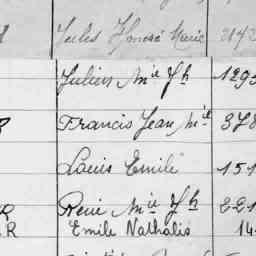 Jules Honoré Marie 3142
Julien Mie Jh 1295
Francis Jean Mie 378
Louis Emile 151
R René Mie Jh 221
R Emile Nathalis 14